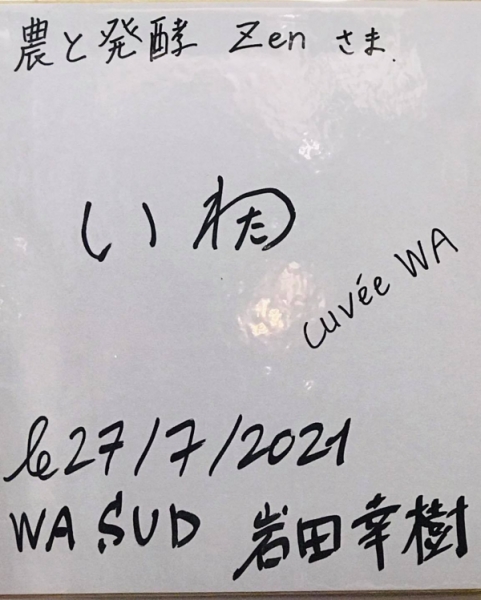 農と発酵 Zen さま.
いわた
cuvée WA
le 27/7/2021
WA SUD 岩田幸樹